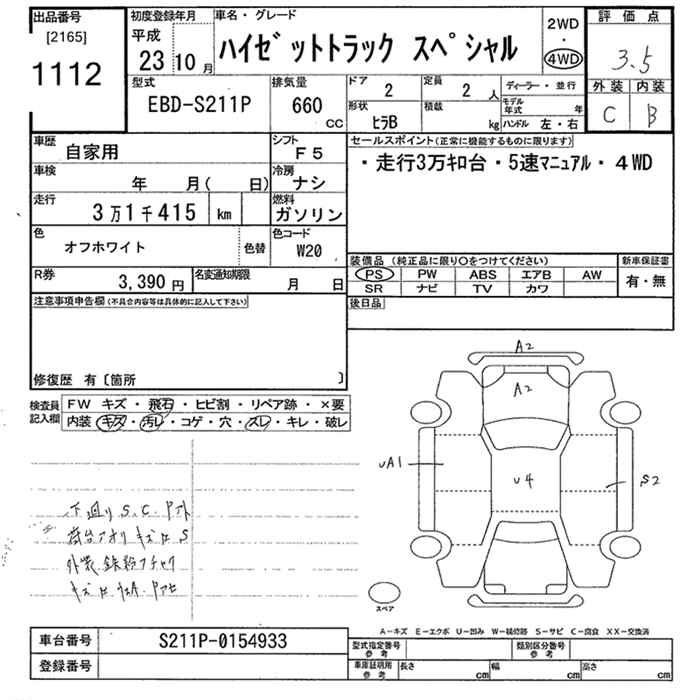 出品番号
[2165]
1112
初度登録年月
平成
23 10 月
車名・グレード
ハイゼットトラック スペシャル
2WD
・
4WD
評価点
3.5
外装 内装
C B
型式
EBD-S211P
排気量
660
CC
ドア
2
定員
2 人
ディーラー・並行
形状
ヒラB
積載
kg
モデル年式 年
ハンドル 左・右
車歴
自家用
シフト
F5
セールスポイント (正常に機能するものに限ります)
・走行3万キロ台・5速マニュアル・4WD
車検
年 月( 日)
冷房
ナシ
走行
3万1千415 km
燃料
ガソリン
色
オフホワイト
色替
色コード
W20
装備品 (純正品に限り〇をつけてください)
新車保証書
PS PW ABS エアB AW
有・無
SR ナビ TV カワ
R券
3,390 円
名変通知期限
月 日
後日品
注意事項申告欄 (不具合内容等は具体的に記入して下さい)
修復歴 有〔箇所 〕
検査員記入欄
FW キズ・飛石・ヒビ割・リペア跡・×要
内装 キズ・汚レ・コゲ・穴・スレ・キレ・破レ
A2
A2
uA1
U4
S2
下廻り S.C.
荷台アオリ キズ S
外装 鉄粉
スペア
A-キズ E-エクボ U-凹み W-補修跡 S-サビ C-腐食 XX-交換済
車台番号
S211P-0154933
登録番号
型式指定番号
参考
類別区分番号
参考
車庫証明用
参考
長さ cm
幅 cm
高さ cm